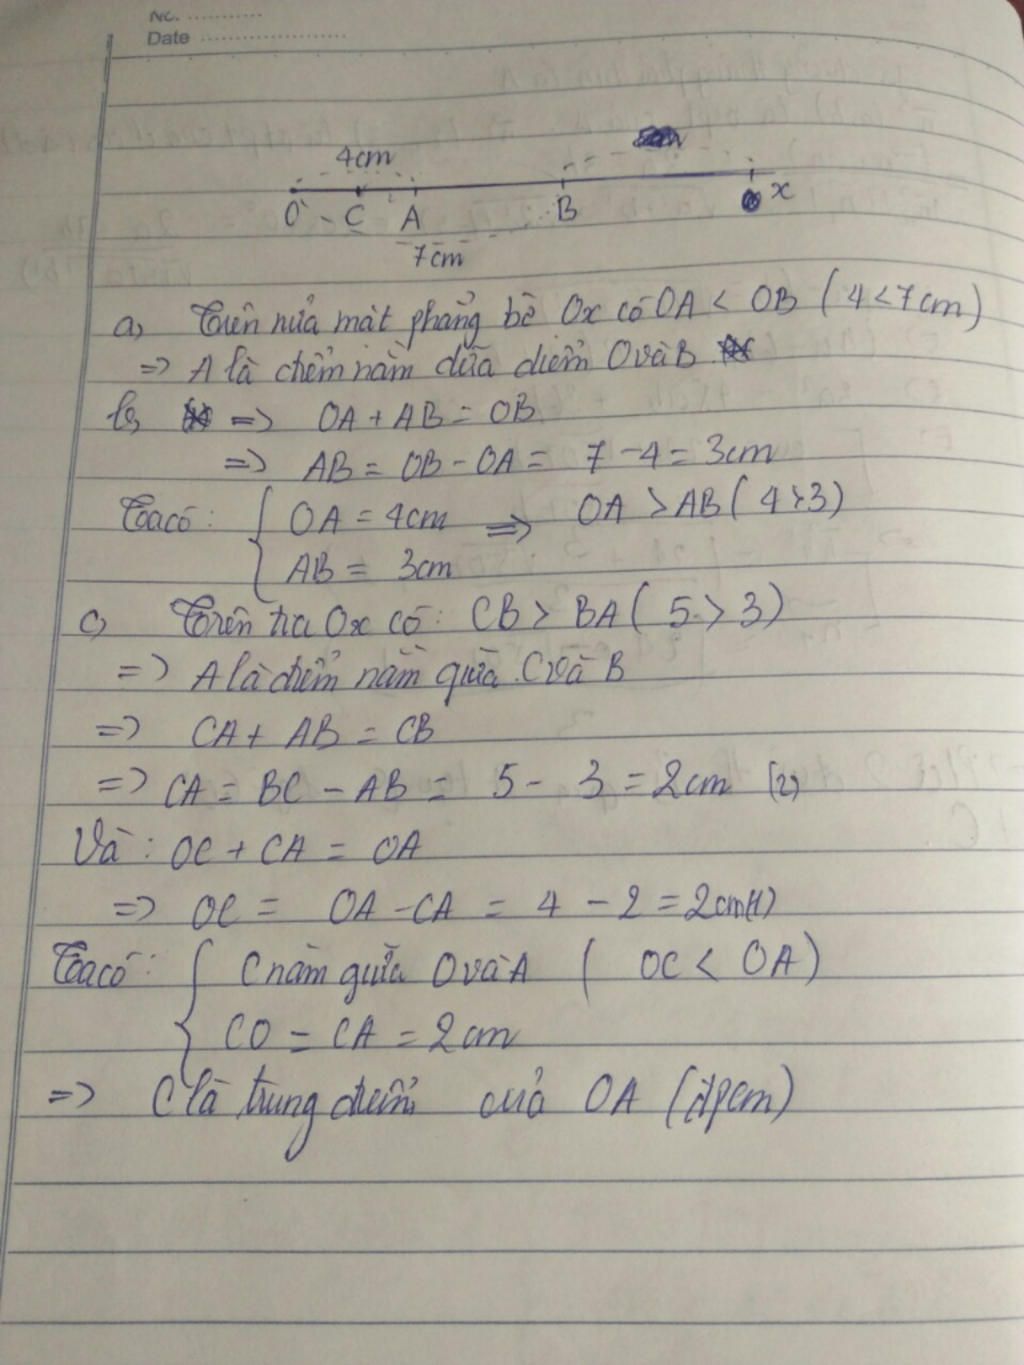 No. ............
Date ......................
4cm
O C A B x
7cm
a, Trên nửa mặt phẳng bờ Ox có OA < OB ( 4 < 7cm )
=> A là điểm nằm giữa điểm O và B
b, => OA + AB = OB
=> AB = OB - OA = 7 - 4 = 3cm
Ta có : { OA = 4cm => OA > AB ( 4 > 3 )
AB = 3cm
c, Trên tia Ox có : CB > BA ( 5 > 3 )
=> A là điểm nằm giữa C và B
=> CA + AB = CB
=> CA = BC - AB = 5 - 3 = 2cm (2)
Và : OC + CA = OA
=> OC = OA - CA = 4 - 2 = 2cm (1)
Ta có : { C nằm giữa O và A ( OC < OA )
CO = CA = 2cm
=> C là trung điểm của OA (đpcm)